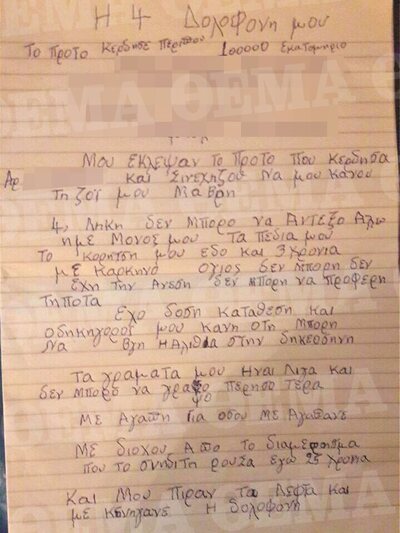 Η 4 Δολοφονη μου
Το Προτο Κερδησε Περιπου 100000 Εκατομηριο
Μου Εκλεψαν Το Προτο Που Κερδησα
Αρ και Σινεχηζου Να μου Κανου
Τη ζοϊ μου Μαβρη
4, Ληκη Δεν Μπορο να Αντεξο Αλω
ημε Μονος μου Τα Πεδια μου
Το Κορητση μου εδο και 3 χρονια
με Καρκηνο ογιος δεν Μπορη δεν
Εχη Την Ανεση δεν μπορη να προφερη
Τηποτα
Εχο δοση καταθεση και
οδηκηγορος μου κανη οτη Μπορη
Να Βγη Η Αληθια στην δηκεοσηνη
Τα γραματα μου Ηναι Λιγα και
δεν Μπορο να γραψο Περησο Τερα
Με Αγαπη Για οσου Με Αγαπανε
Με διοχου Απο το διαμερησμα
που το συνδιτη ρουξα εγω 25 χρονια
Και Μου Πιραν τα Λεφτα και
με κηνηγανε Η δολοφονη
ΘΕΜΑ ΘΕΜΑ